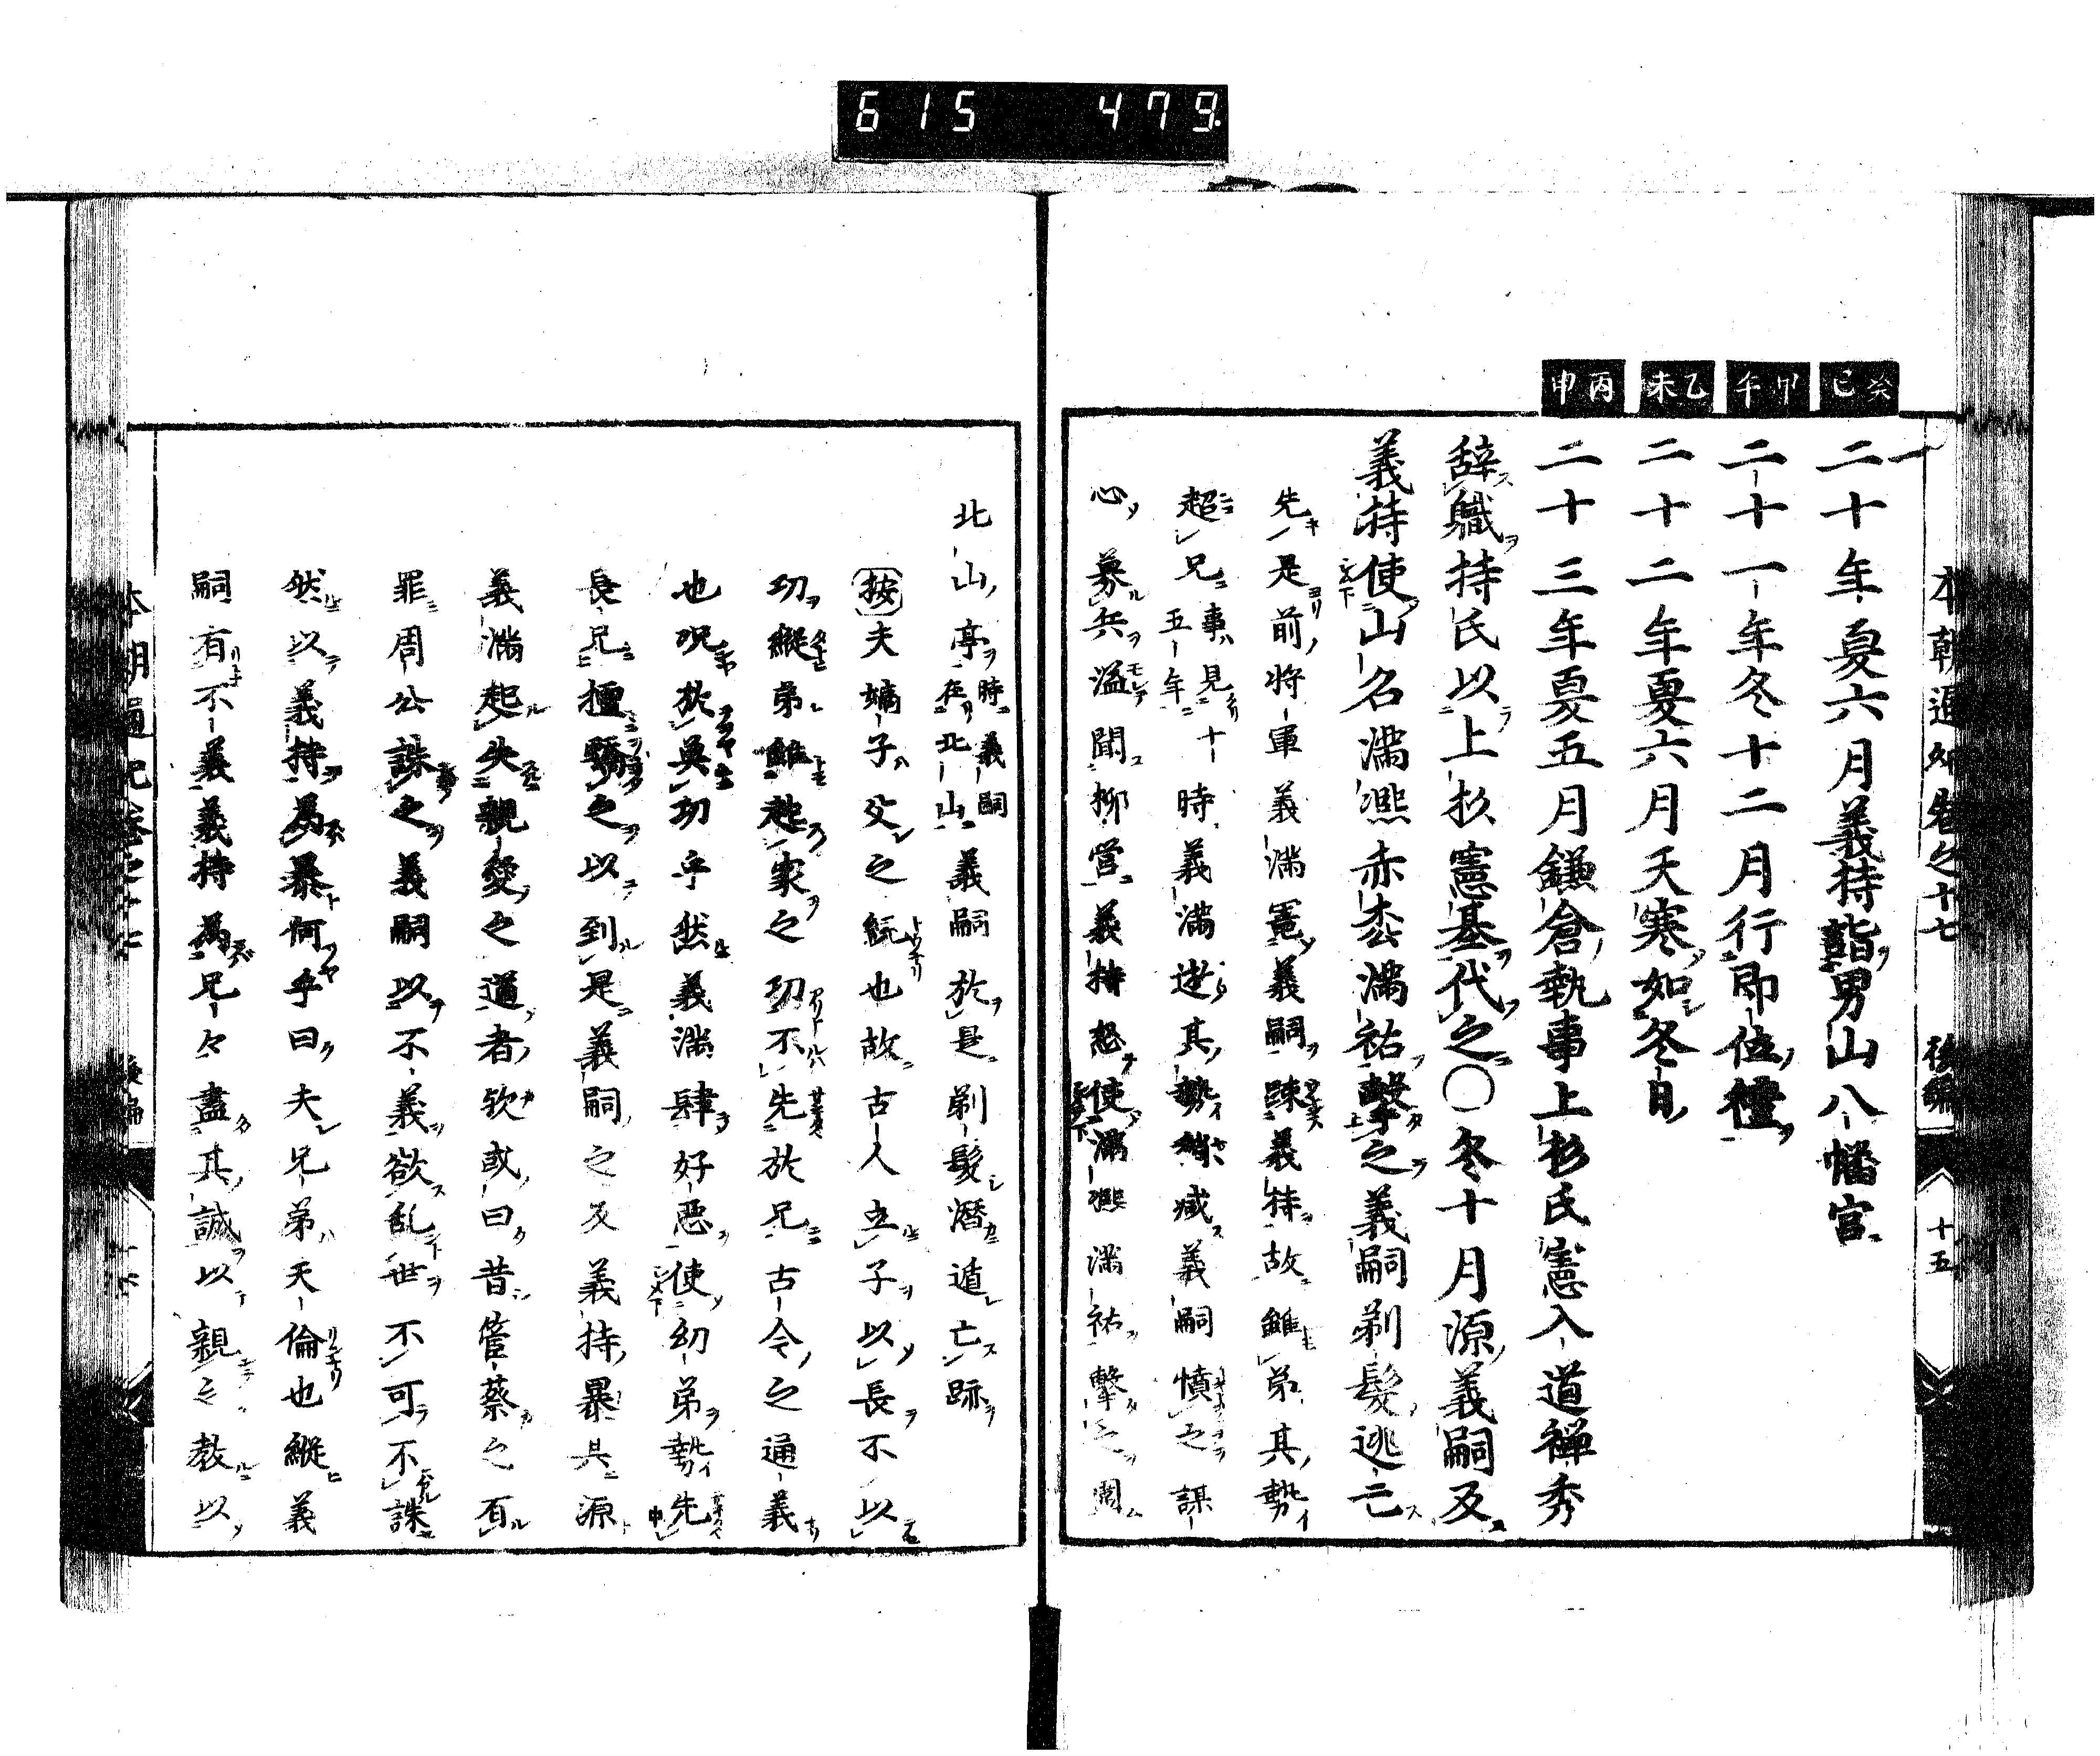 615 479
本朝通紀卷之十七 後編 十五
癸巳
甲午
乙未
丙申
二十年夏六月義持詣男山八幡宮
二十一年冬十二月行即位禮
二十二年夏六月天寒如冬日
二十三年夏五月鎌倉執事上杉氏憲入道禅秀
辞職持氏以上杦憲基代之〇冬十月源義嗣及
義持使山名満凞赤枩満祐擊之義嗣剃髮逃亡
先是前将軍義満寵義嗣踈義持故雖弟其勢
超兄事見十五年時義満逝其勢稍減義嗣憤之謀
心募兵溢聞柳営義持怒使満凞満祐擊之
北山亭時義嗣在北山義嗣於是剃髮潜遁亡跡
按夫嫡子父之統也故古人立子以長不以
功縦弟雖起家之功不先於兄古今之通義
也况於無功乎然義満肆好惡使幼弟勢先
長兄擅驕之以到是義嗣之及義持暴共源
義満起失親愛之道者欤或曰昔管蔡之有
罪周公誅之義嗣以不義欲乱世不可不誅
然以義持為暴何乎曰夫兄弟天倫也縦義
嗣有不義義持為兄々盡其誠以親之教以